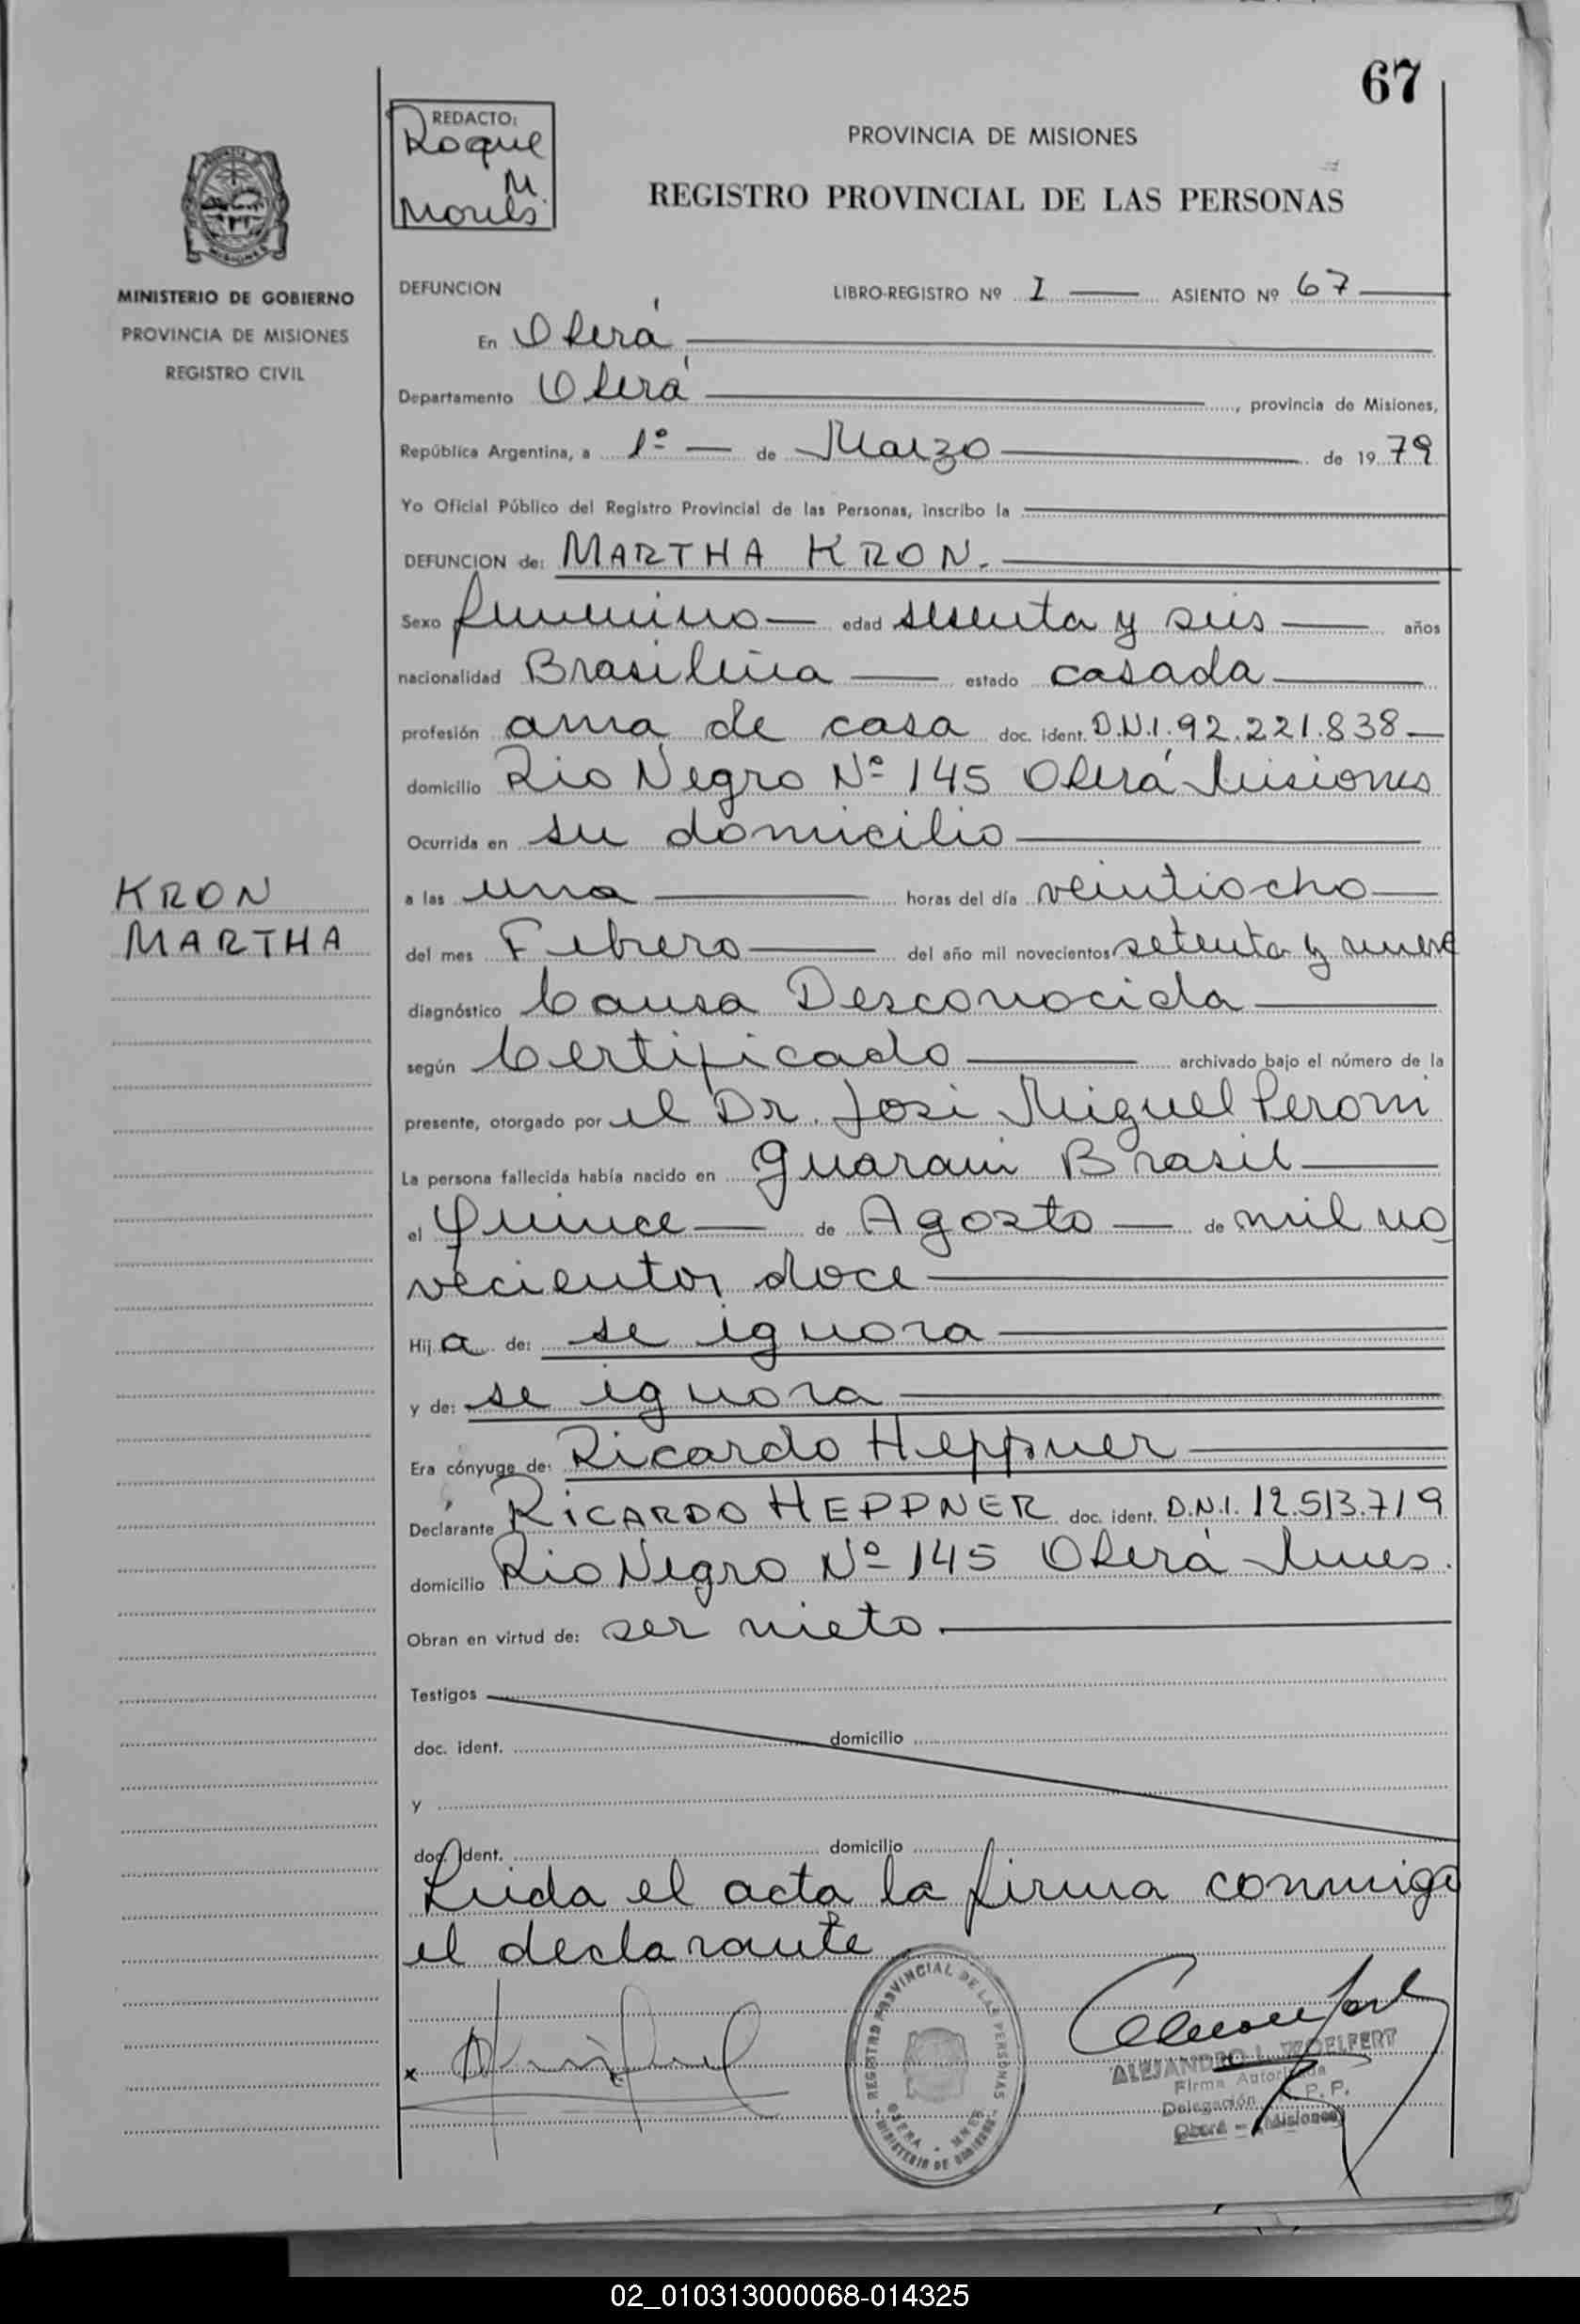 67
REDACTO:
Roque
M
PROVINCIA DE MISIONES
REGISTRO PROVINCIAL DE LAS PERSONAS
MINISTERIO DE GOBIERNO
PROVINCIA DE MISIONES
REGISTRO CIVIL
DEFUNCION LIBRO-REGISTRO Nº I ASIENTO Nº 67
En Oberá
Departamento Oberá, provincia de Misiones,
República Argentina, a 1º de Marzo de 1979
Yo Oficial Público del Registro Provincial de las Personas, inscribo la
DEFUNCION de: MARTHA KRON.
Sexo femenino edad sesenta y seis años
nacionalidad Brasileña estado casada
profesión ama de casa doc. ident. D.N.I. 92.221.838
domicilio Rio Negro Nº 145 Oberá Misiones
Ocurrida en su domicilio
KRON
MARTHA
a las una horas del día veintiocho
del mes Febrero del año mil novecientos setenta y nueve
diagnóstico Causa Desconocida
según Certificado archivado bajo el número de la
presente, otorgado por el Dr. José Miguel Peroni
La persona fallecida había nacido en Guarani Brasil
el quince de Agosto de mil no
vecientos doce
Hija de: se ignora
y de: se ignora
Era cónyuge de: Ricardo Heppner
Declarante RICARDO HEPPNER doc. ident. D.N.I. 12.513.719
domicilio Rio Negro Nº 145 Oberá Mnes.
Obran en virtud de: ser nieto.
Testigos
doc. ident. domicilio
y
doc. ident. domicilio
Leida el acta la firma conmigo
el declarante
REGISTRO PROVINCIAL DE LAS PERSONAS
OBERA - MNES
MINISTERIO DE GOBIERNO
ALEJANDRO L. WOELFERT
Firma Autorizada
Delegación R.P.P.
Oberá - Misiones
02_010313000068-014325